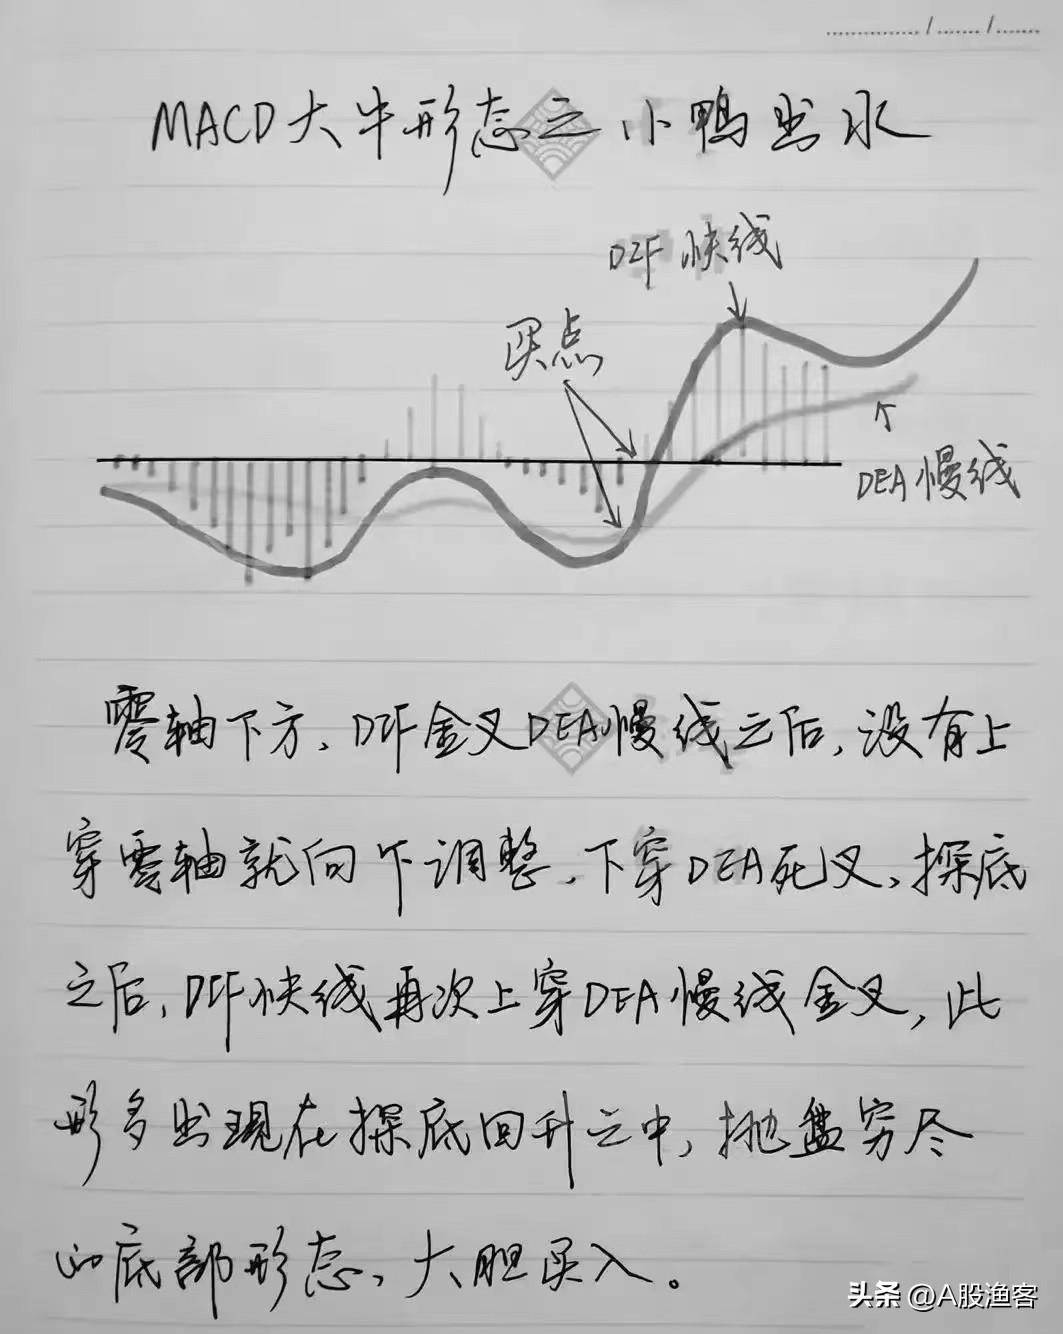 MACD大牛形态之小鸭出水
DIF快线
买点
DEA慢线
零轴下方,DIF金叉DEA慢线之后,没有上
穿零轴就向下调整,下穿DEA死叉,探底
之后,DIF快线再次上穿DEA慢线金叉,此
形多出现在探底回升之中,抛盘穷尽
的底部形态,大胆买入。
头条 @A股渔客